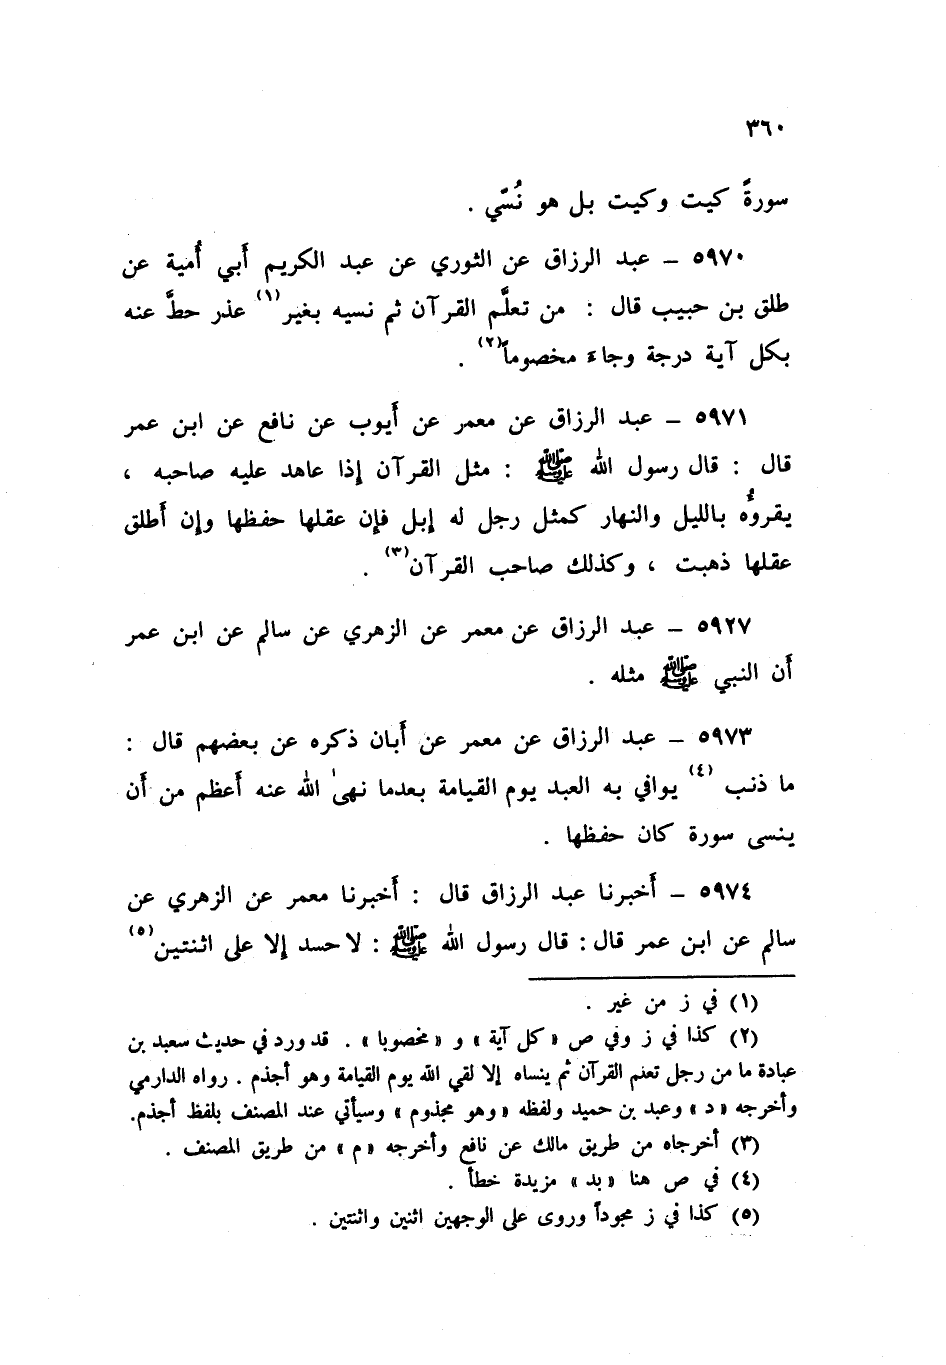 ٣٦٠
سورةً كيت وكيت بل هو نُسّي .
٥٩٧٠ ــ عبد الرزاق عن الثوري عن عبد الكريم أَبي أُمية عن
طلق بن حبيب قال : من تعلَّم القرآن ثم نسيه بغير(١) عذر حطَّ عنه
بكل آية درجة وجاءَ مخصوماً(٢) .
٥٩٧١ ــ عبد الرزاق عن معمر عن أَيوب عن نافع عن ابن عمر
قال : قال رسول الله ﷺ : مثل القرآن إذا عاهد عليه صاحبه ،
يقروُّه بالليل والنهار كمثل رجل له إبل فإن عقلها حفظها وإن أَطلق
عقلها ذهبت ، وكذلك صاحب القرآن(٣) .
٥٩٢٧ ــ عبد الرزاق عن معمر عن الزهري عن سالم عن ابن عمر
أَن النبي ﷺ مثله .
٥٩٧٣ ــ عبد الرزاق عن معمر عن أَبان ذكره عن بعضهم قال :
ما ذنب (٤) يوافي به العبد يوم القيامة بعدما نهىٰ الله عنه أَعظم من أَن
ينسى سورة كان حفظها .
٥٩٧٤ ــ أَخبرنا عبد الرزاق قال : أَخبرنا معمر عن الزهري عن
سالم عن ابن عمر قال : قال رسول الله ﷺ : لا حسد إلا على اثنتين(٥)
(١) في ز من غير .
(٢) كذا في ز وفي ص « كل آية » و « مخصوبا » . قد ورد في حديث سعيد بن
عبادة ما من رجل تعلم القرآن ثم ينساه إلا لقي الله يوم القيامة وهو أجذم . رواه الدارمي
وأخرجه « د » وعبد بن حميد ولفظه « وهو مجذوم » وسيأتي عند المصنف بلفظ أجذم.
(٣) أخرجاه من طريق مالك عن نافع وأخرجه « م » من طريق المصنف .
(٤) في ص هنا « بد » مزيدة خطأ .
(٥) كذا في ز مجوداً وروى على الوجهين اثنين واثنتين .